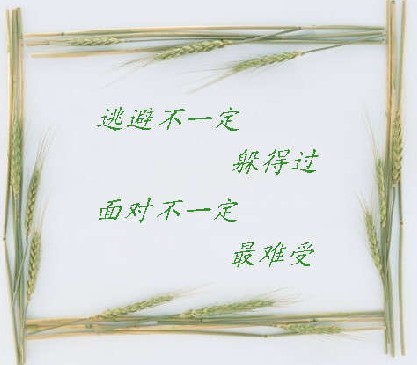 逃避不一定
躲得过
面对不一定
最难受